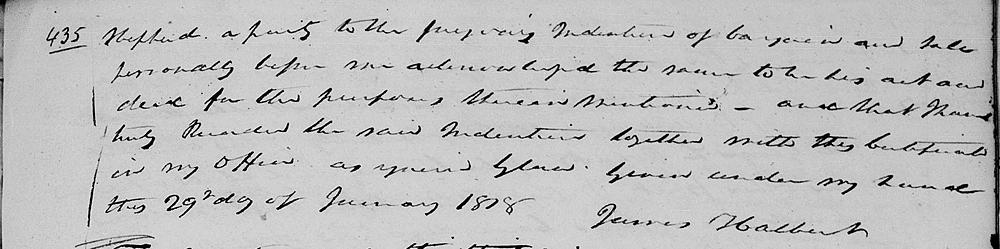 435 Shepherd. a party to the foregoing Indenture of bargain and sale
personally before me acknowledged the same to be his act and
deed for the purposes therein mentioned – and that I have
truly Recorded the said Indenture together with this Certificate
in my Office as required by law. Given under my hand
this 29th day of January 1818
James Halbert